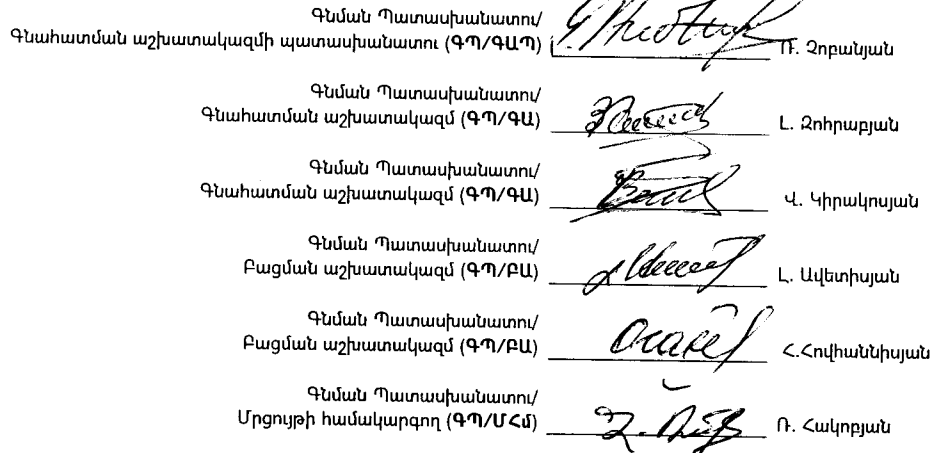 Գնման Պատասխանատու/
Գնահատման աշխատակազմի պատասխանատու (ԳՊ/ԳԱՊ) Ռ. Չոբանյան
Գնման Պատասխանատու/
Գնահատման աշխատակազմ (ԳՊ/ԳԱ) Լ. Զոհրաբյան
Գնման Պատասխանատու/
Գնահատման աշխատակազմ (ԳՊ/ԳԱ) Վ. Կիրակոսյան
Գնման Պատասխանատու/
Բացման աշխատակազմ (ԳՊ/ԲԱ) Լ. Ավետիսյան
Գնման Պատասխանատու/
Բացման աշխատակազմ (ԳՊ/ԲԱ) Հ.Հովհաննիսյան
Գնման Պատասխանատու/
Մրցույթի համակարգող (ԳՊ/ՄՀմ) Ռ. Հակոբյան